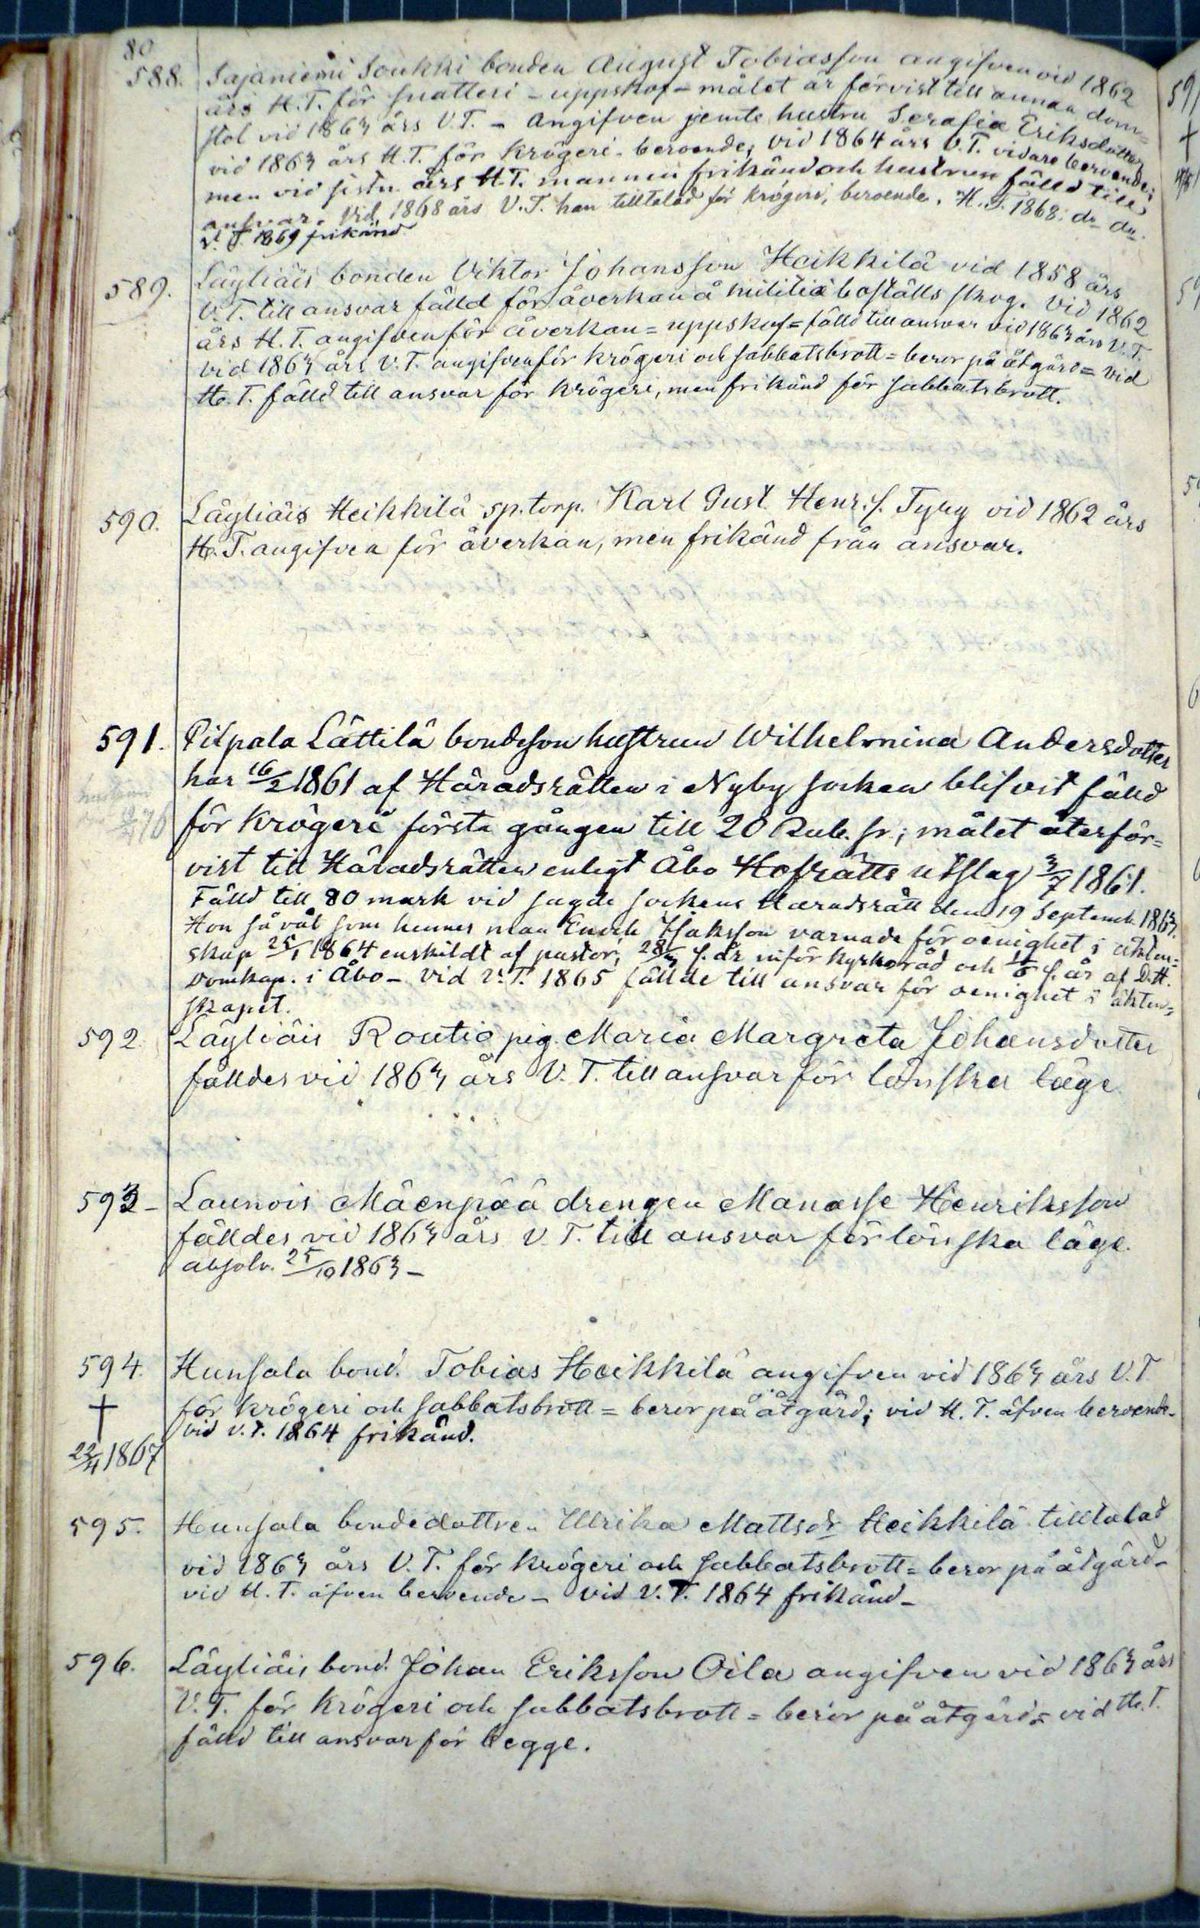 80
588. Sajaniemi Soukki bonden August Tobiasson angifven vid 1862
års H.T. för snatteri - uppskof - målet är förvist till annan dom-
stol vid 1863 års V.T. - Angifven jemte hustru Serafia Eriksdotter
vid 1863 års H.T. för krögeri - beroende; vid 1864 års V.T. vidare beroende;
men vid sistn. års H.T. mannen frikänd och hustrun fälld till
ansvar. Vid 1868 års V.T. han tilltalad för krögeri, beroende. H.T. 1868: do do.
V.T. 1869 frikänd
589. Läyliäis bonden Viktor Johansson Heikkilä vid 1858 års
V.T. till ansvar fälld för åverkan å militiä boställs skog. Vid 1862
års H.T. angifven för åverkan = uppskof = fälld till ansvar vid 1863 års V.T.
vid 1863 års V.T. angifven för krögeri och sabbatsbrott = beror på åtgärd = vid
H.T. fälld till ansvar för krögeri, men frikänd för sabbatsbrott.
590. Läyliäis Heikkilä sp.torp. Karl Gust. Henr.s. Tyky vid 1862 års
H.T. angifven för åverkan, men frikänd från ansvar.
591. Pilpala Lättilä bondeson hustrun Wilhelmina Andersdotter
har 16/2 1861 af Häradsrätten i Nyby socken blifvit fälld
för krögeri första gången till 20 Rub. sr; målet återför-
vist till Häradsrätten enligt Åbo Hofrätts utslag 3/7 1861.
Fälld till 80 mark vid sagde sockens Häradsrätt den 19 Septemb. 1863.
Hon såväl som hennes man Enok Isaksson varnade för oenighet i äkten-
skap 25/1 1864 enskildt af pastor; 28/3 s. år inför kyrkoråd och s. år af Dtt.
Domkap. i Åbo - vid V.T. 1865 fällde till ansvar för oenighet i äkten-
skapet.
592. Läyliäis Routio pig. Maria Margreta Johansdotter
fälldes vid 1863 års V.T. till ansvar för lönska läge
593 - Launois Mäenpää drengen Manasse Henriksson
fälldes vid 1863 års V.T. till ansvar för lönska läge.
absolv. 25/10 1863 -
594. Hunsala bond. Tobias Heikkilä angifven vid 1863 års V.T.
† för krögeri och sabbatsbrott = beror på åtgärd; vid H.T. äfven beroende -
vid V.T. 1864 frikänd.
22/4 1867
595. Hunsala bondedottren Ulrika Mattsdr Heikkilä tilltalad
vid 1863 års V.T. för krögeri och sabbatsbrott = beror på åtgärd -
vid H.T. äfven beroende - vid V.T. 1864 frikänd -
596. Läyliäis bond. Johan Eriksson Oila angifven vid 1863 års
V.T. för krögeri och sabbatsbrott = beror på åtgärd = vid H.T.
fälld till ansvar för begge.